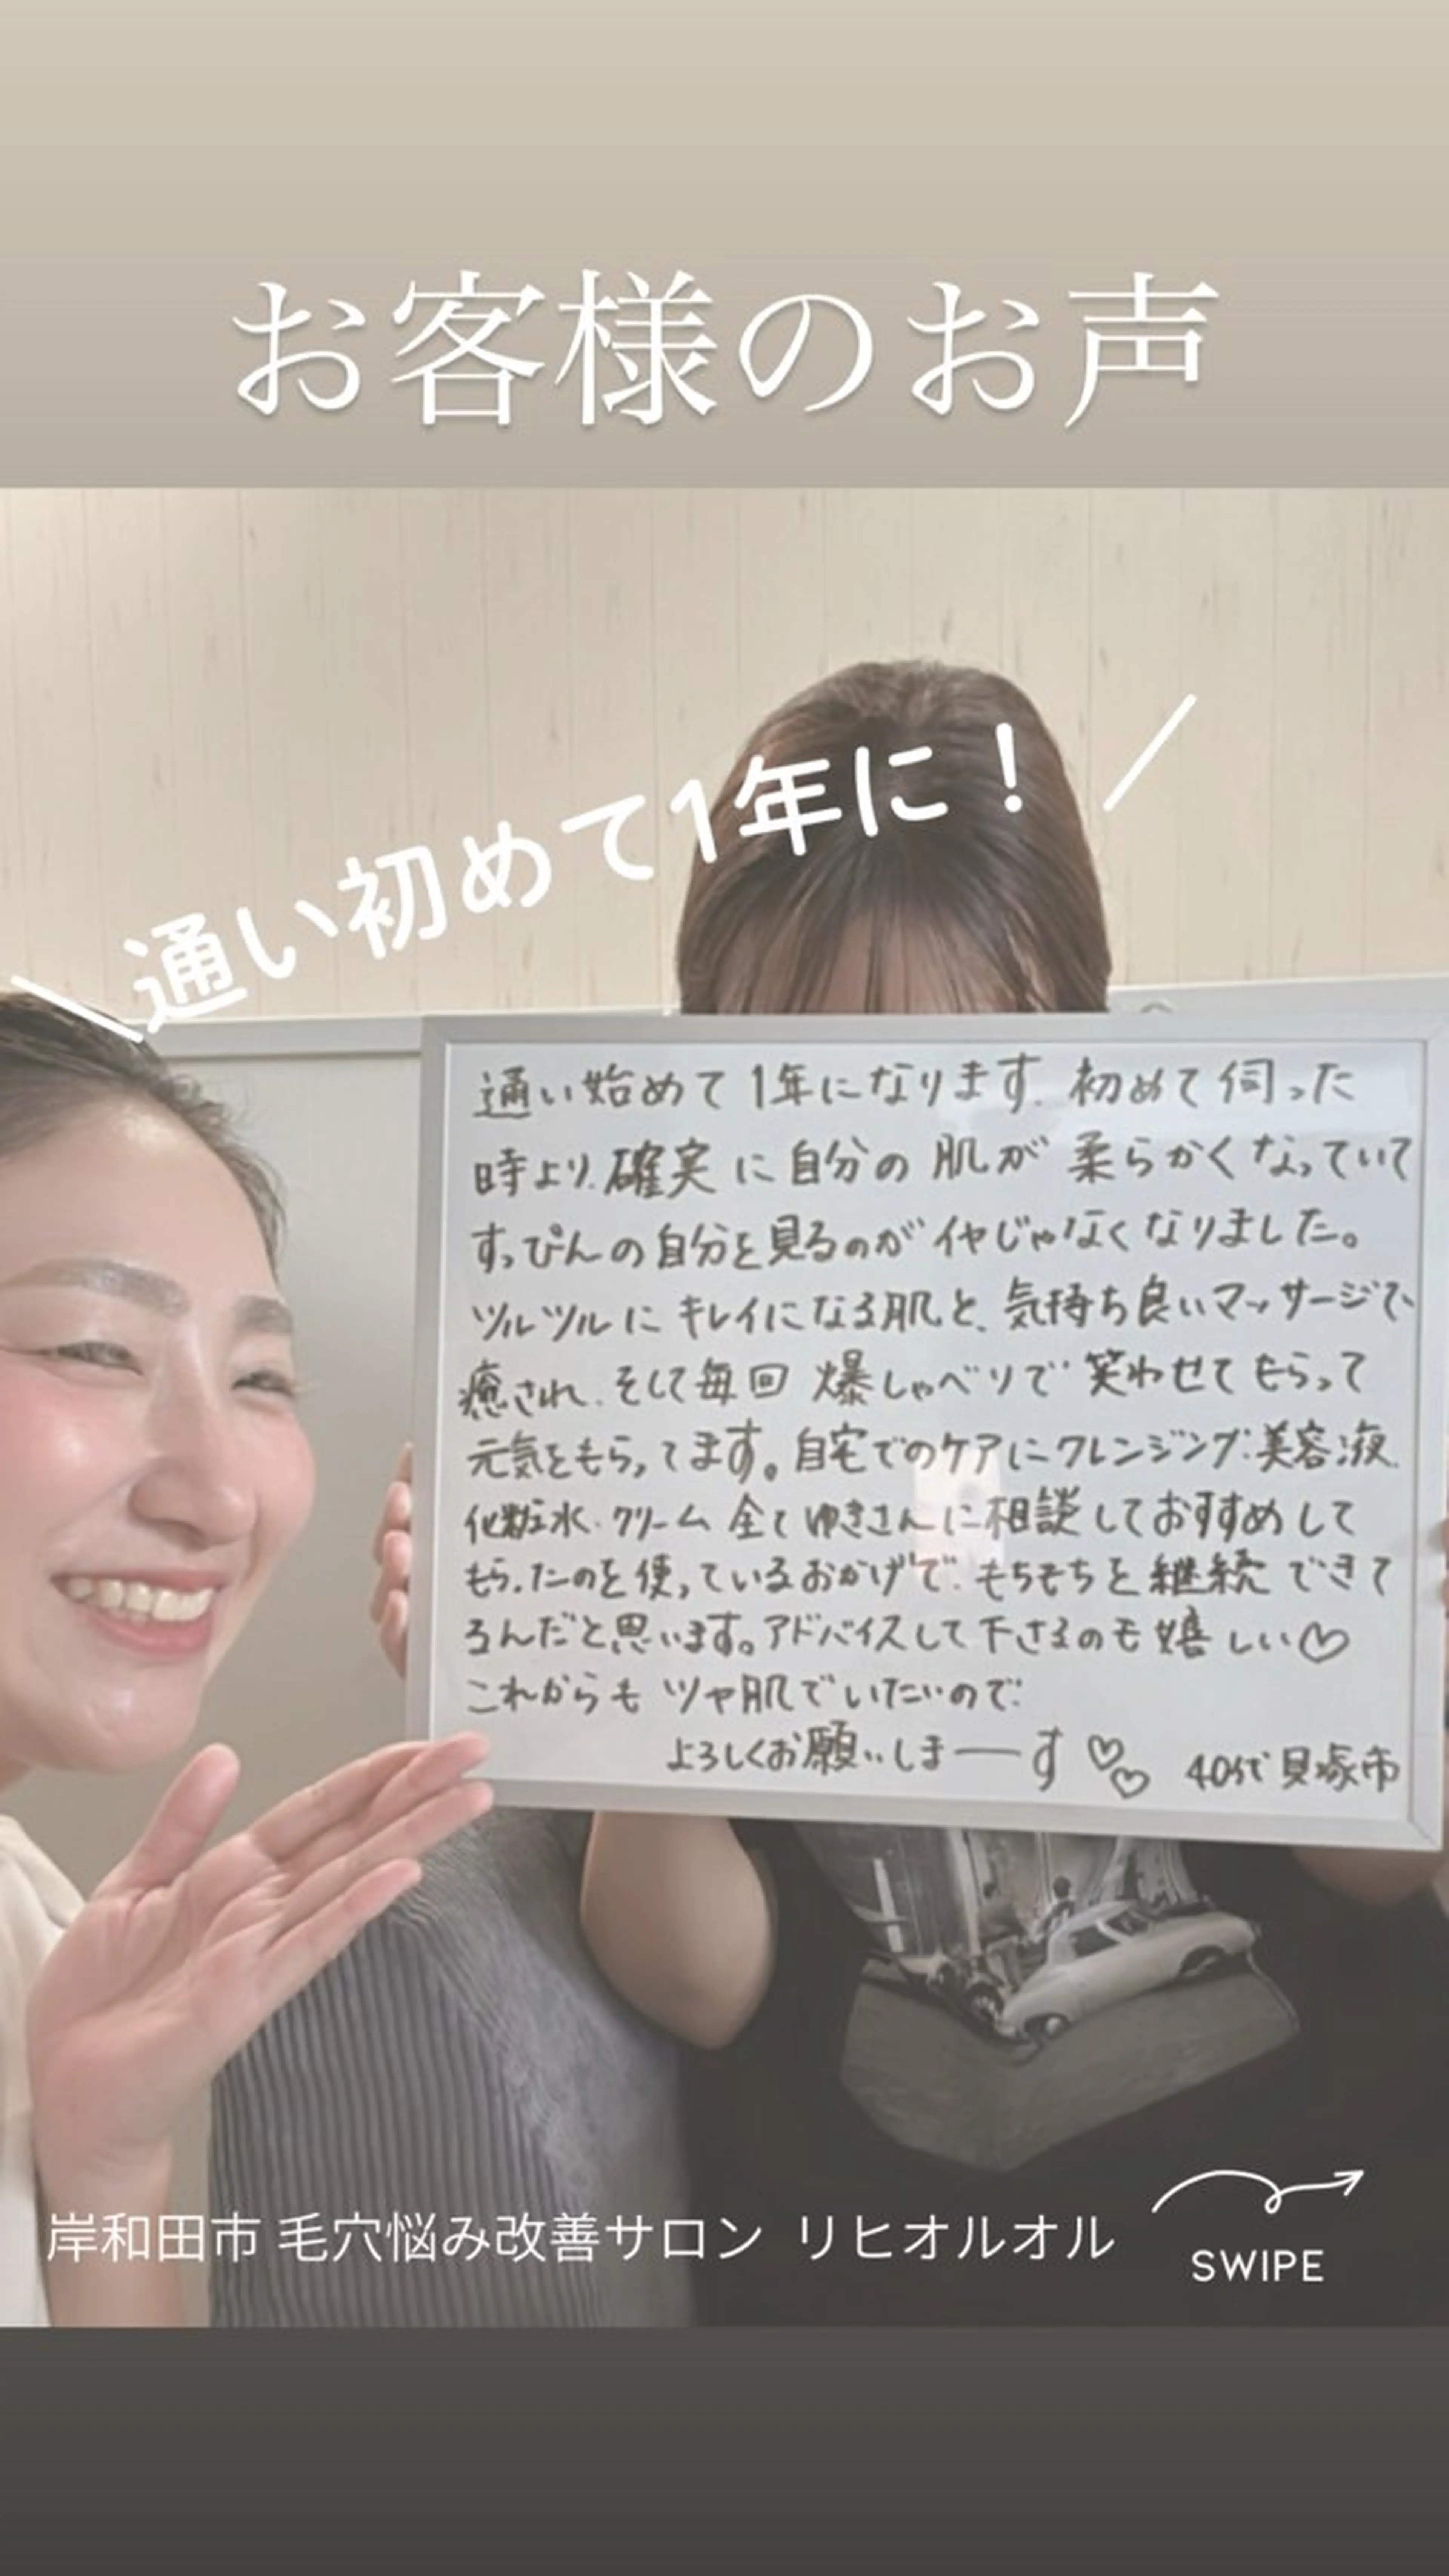 お客様のお声
\通い初めて1年に！／
通い始めて1年になります.初めて伺った
時より.確実に自分の肌が柔らかくなっていて
すっぴんの自分を見るのがイヤじゃなくなりました。
ツルツルにキレイになる肌と、気持ち良いマッサージで、
癒され、そして毎回爆しゃべりで笑わせてもらって
元気をもらってます。自宅でのケアにクレンジング・美容液.
化粧水・クリーム全てゆきさんに相談しておすすめして
もらったのを使っているおかげで、もちもちを継続できて
るんだと思います。アドバイスして下さるのも嬉しい♡
これからもツヤ肌でいたいので
よろしくお願いしまーす♡♡ 40代貝塚市
岸和田市 毛穴悩み改善サロン リヒオルオル
SWIPE